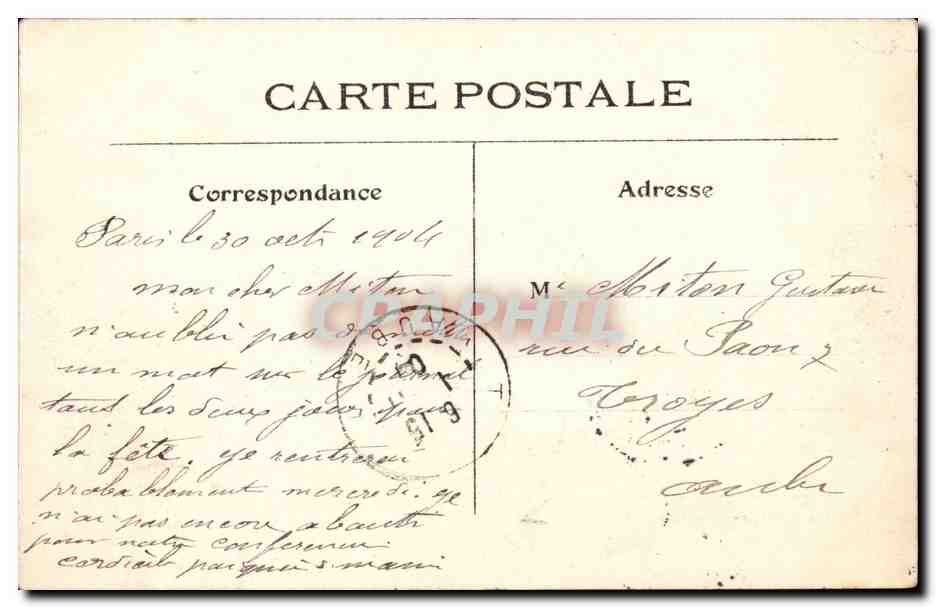 CARTE POSTALE
Correspondance
Adresse
Paris le 30 oct 1904
mon cher Miton
n'oublie pas de
un mot sur le journal
tous les deux jours pour
la fête. je rentrerai
probablement mercredi. je
n'ai pas encore abouti
pour notre conference
cordiale poignée d main
M. Miton Gustave
rue du Paon 7
Troyes
Aube
CPAPHIL